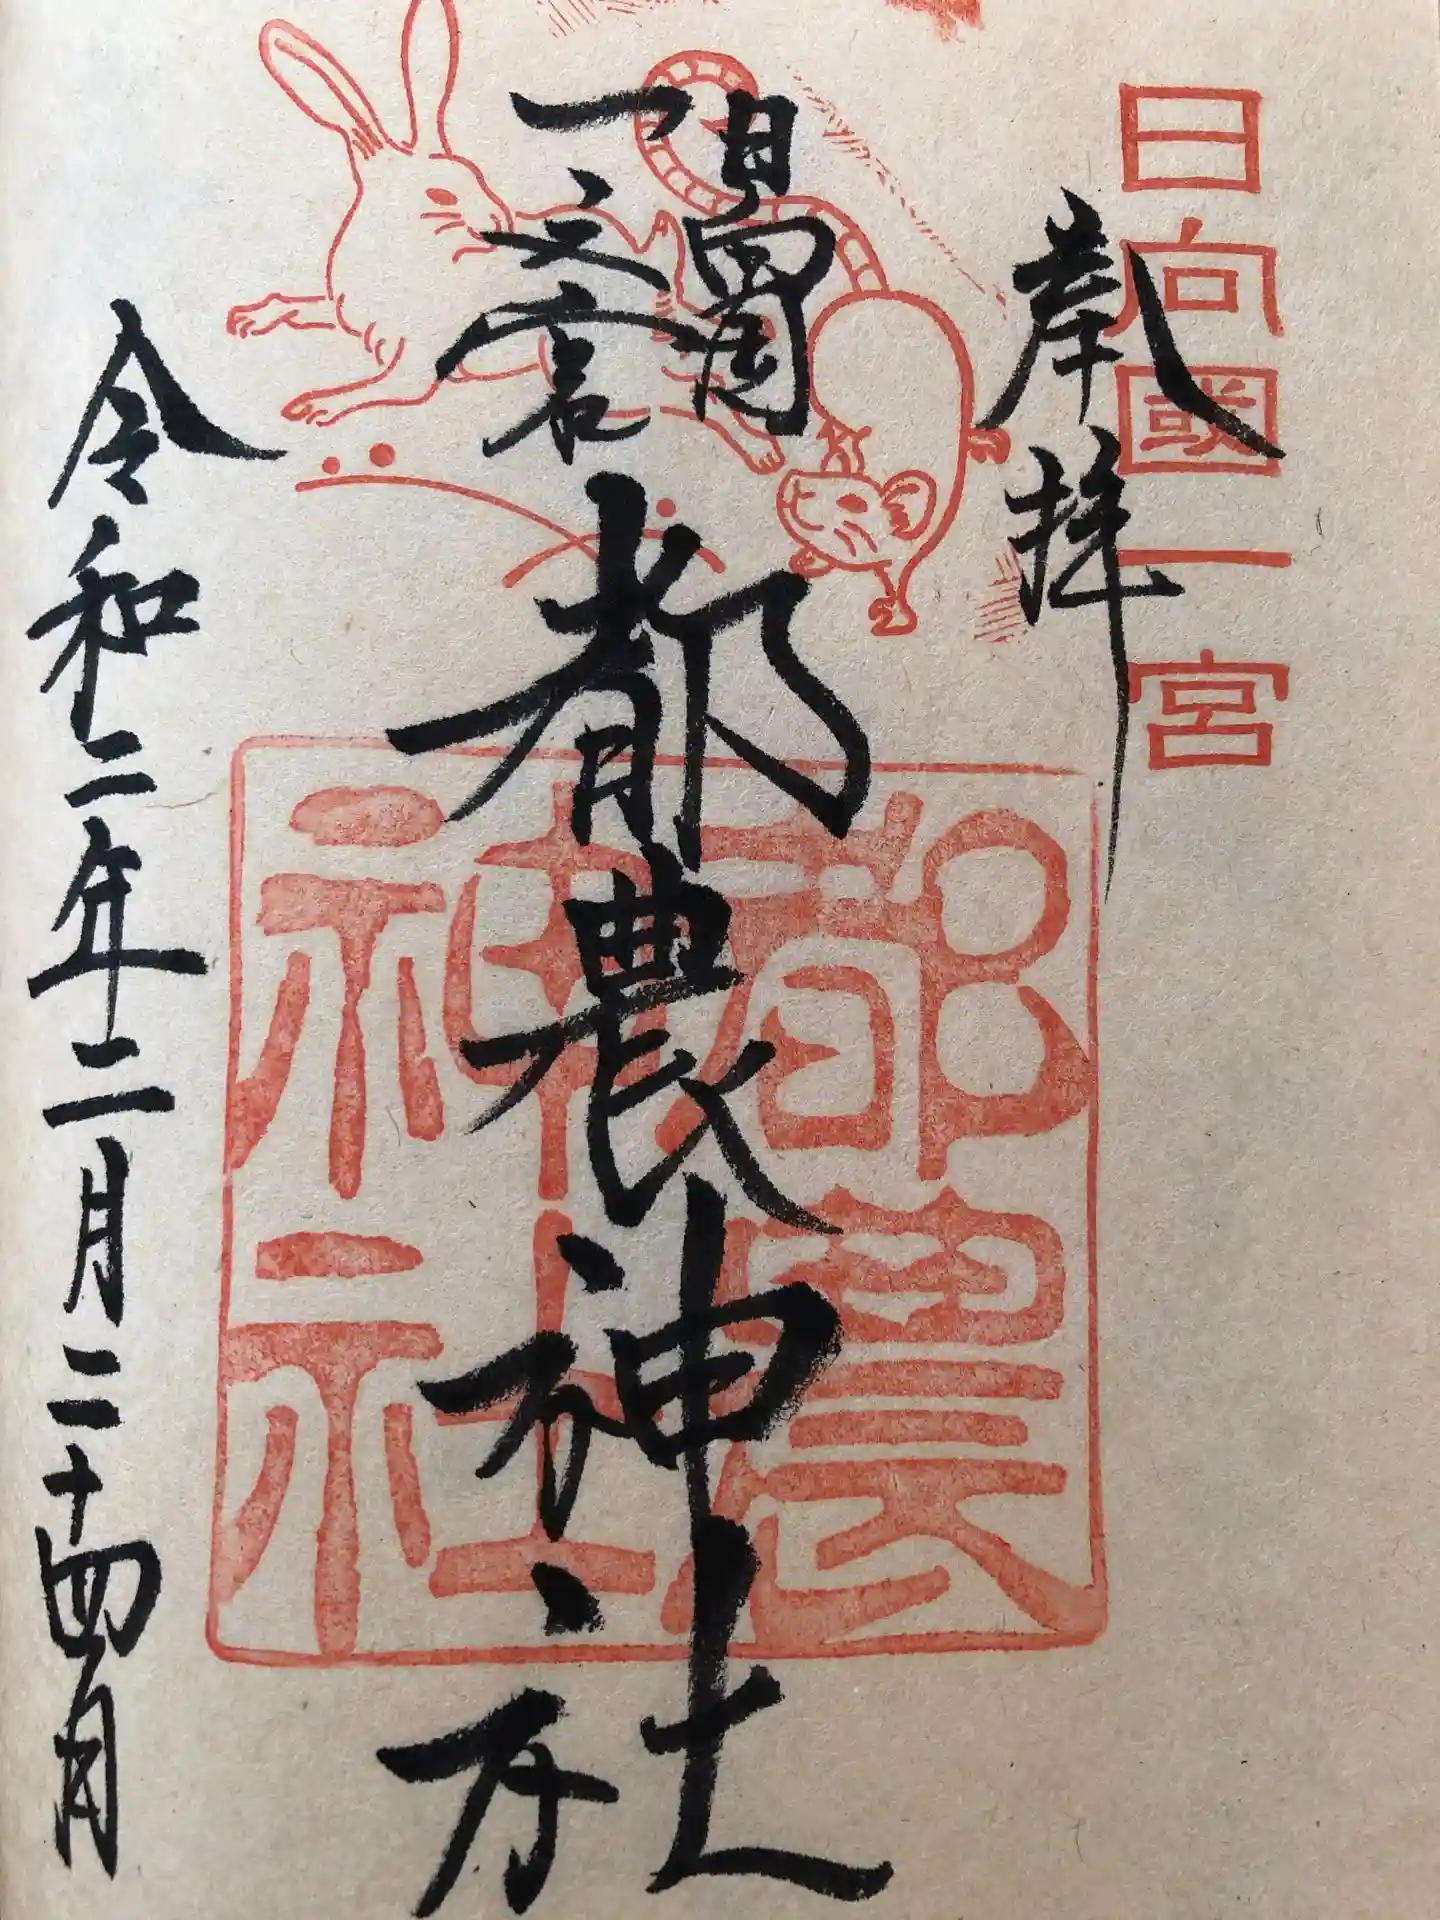 日向國一宮
奉拝
日向國
一之宮
都農神社
都農
神社
令和二年二月二十四日